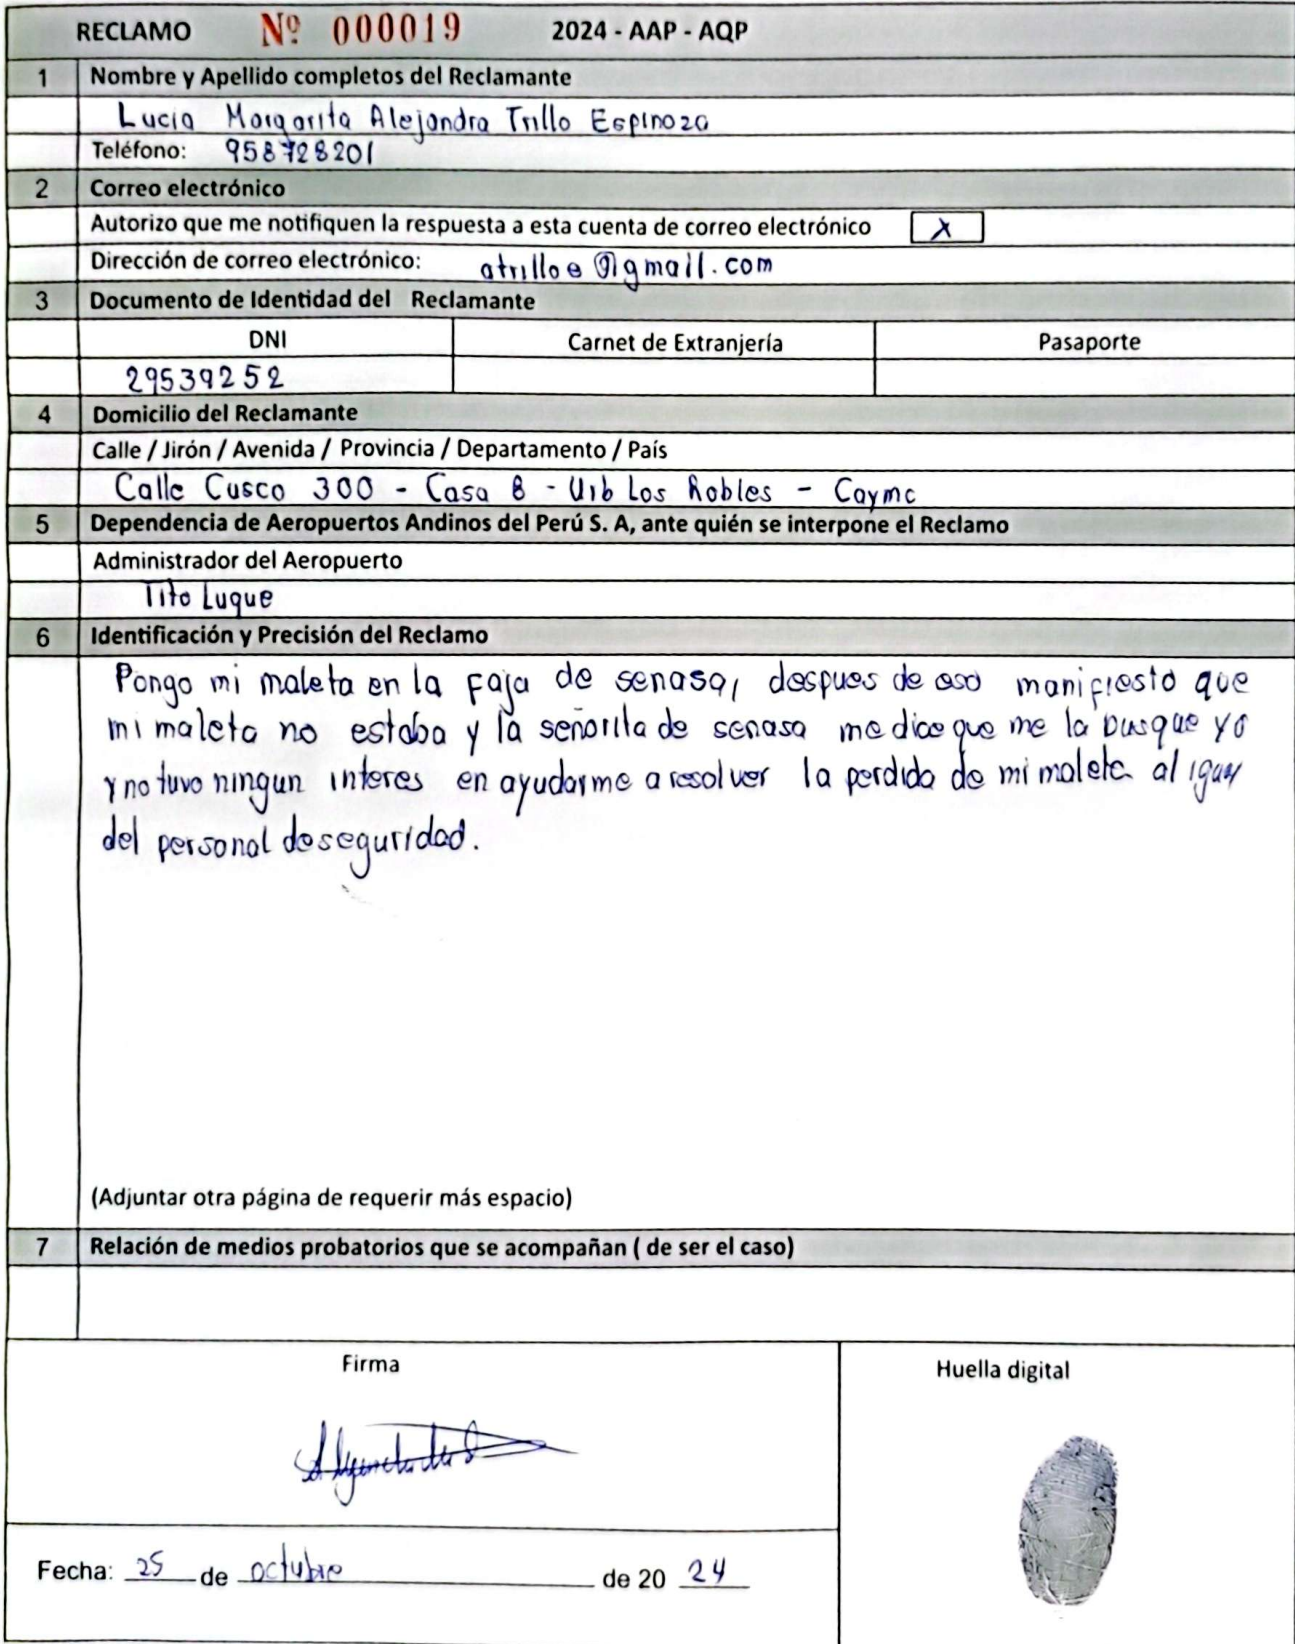 RECLAMO Nº 000019 2024 - AAP - AQP
1 Nombre y Apellido completos del Reclamante
Lucia Margarita Alejandra Trillo Espinoza
Teléfono: 958728201
2 Correo electrónico
Autorizo que me notifiquen la respuesta a esta cuenta de correo electrónico X
Dirección de correo electrónico: atrilloe@gmail.com
3 Documento de Identidad del Reclamante
DNI Carnet de Extranjería Pasaporte
29539252
4 Domicilio del Reclamante
Calle / Jirón / Avenida / Provincia / Departamento / País
Calle Cusco 300 - Casa 8 - Urb Los Robles - Cayma
5 Dependencia de Aeropuertos Andinos del Perú S. A, ante quién se interpone el Reclamo
Administrador del Aeropuerto
Tito Luque
6 Identificación y Precisión del Reclamo
Pongo mi maleta en la faja de senasa, despues de eso manifiesto que
mi maleta no estaba y la señorita de senasa me dice que me la busque yo
y no tuvo ningun interes en ayudarme a resolver la perdida de mi maleta al igual
del personal de seguridad.
(Adjuntar otra página de requerir más espacio)
7 Relación de medios probatorios que se acompañan ( de ser el caso)
Firma
Huella digital
Fecha: 25 de octubre de 20 24